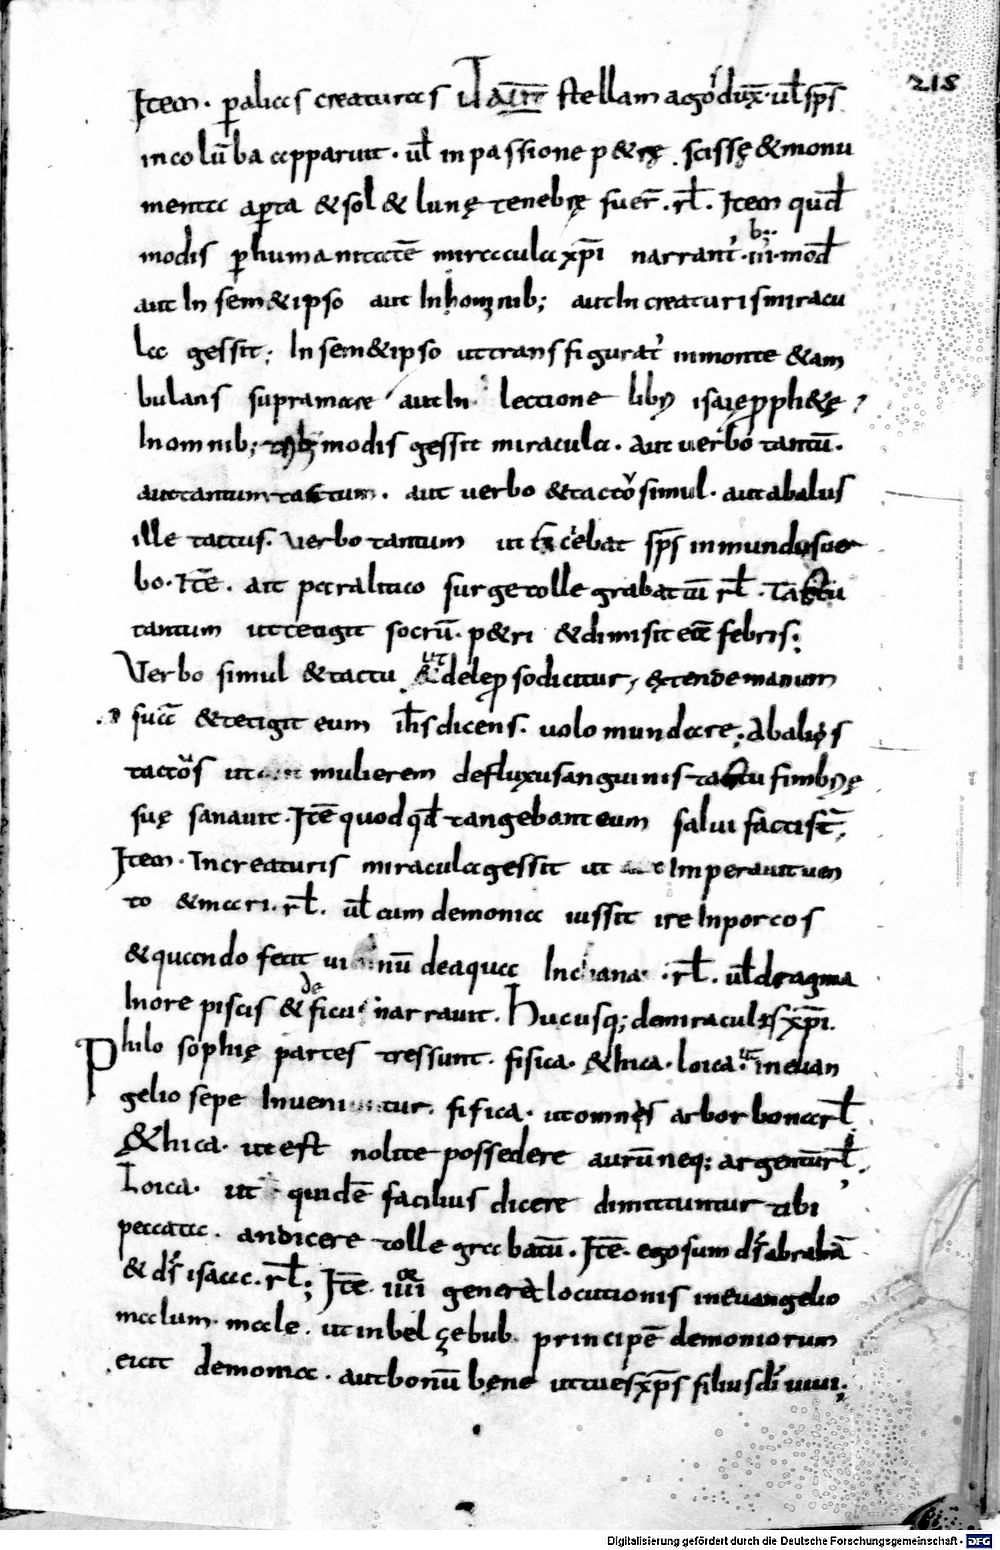 218
Item · ꝑ alias creaturas stellam magoꝝ dux̄ · ul̄ sp̄s
in colūba apparuit · ul̄ in passione petrę scissę & monu
menta aꝑta & sol & lunę tenebrę fuer̄ · rl̄ · Item quod
modis ꝑ humanitatē miracula xp̄i narrant · iiii · mod
aut In sem&ipso aut In hominib; aut In creaturis miracu
la gessit; In sem&ipso ut transfigurat in monte & am
bulans supra mare aut In lectione libri isaię pph&ę
In omnib; modis gessit miracula · aut uerbo tantū ·
aut tantum tactum · aut uerbo & tacto simul · aut ab alus
ille tactus · Verbo tantum ut sp̄s inmundus uer
bo · Itē · ait paralitico surge tolle grabatū rl̄ · Tactū
tantum ut tetigit socrū · p&ri & dimisit eā febris;
Verbo simul & tactu ut de lepso dicitur, extende manum
suā & tetigit eum ih̄s dicens · uolo mundare; Ab aliis
tactus ut mulierem de fluxu sanguinis tactu fimbrię
suę sanauit · Itē quodquod tangebant eum salui facti s̄t;
Item · In creaturis miracula gessit ut Imperauit uen
to & mari · rl̄ · ul̄ cum demonia iussit ire In porcos
& quando fecit uinū de aqua In chana · rl̄ · ul̄ dragma
In ore piscis & de ficu narrauit · Hucusq; de miraculis xp̄i ·
Philosophię partes tres sunt · fisica · &hica · loica · ut in euan
gelio sepe Inueniuntur · fisica · ut omnis arbor bona rl̄
&hica · ut est nolite possedere aurū neq; argentū rl̄;
Loica · ut quidē facilius dicere dimittuntur tibi
peccata · an dicere tolle grabatū · Itē · ego sum d̄s abrahā
& d̄s isaac · rl̄; Itē · iiii genera locutionis in euangelio
malum · male · ut in belzebub principē demoniorum
eicit demonia · aut bonū bene ut tu es xp̄s filius di uiui;
Digitalisierung gefördert durch die Deutsche Forschungsgemeinschaft · DFG